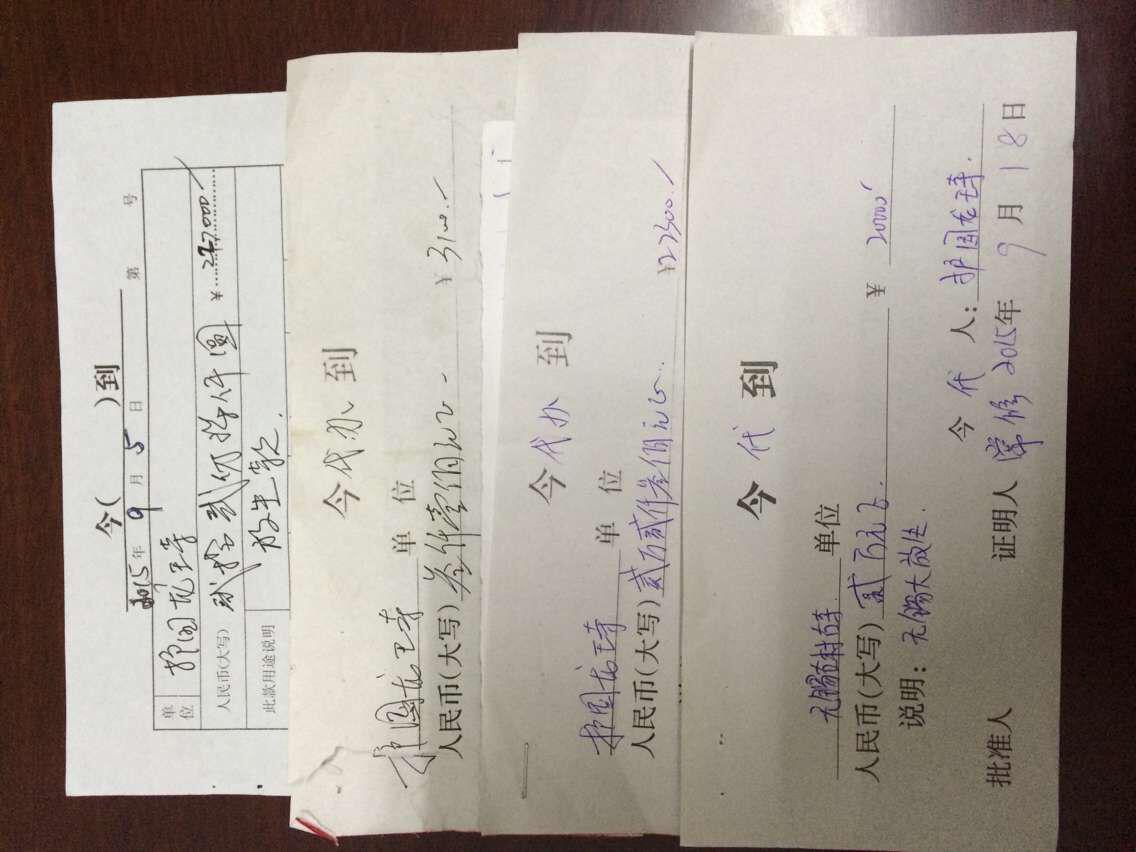 今( )到
2015年 9 月 5 日 第 号
单位 护国龙王寺
人民币(大写) 贰拾贰万柒仟圆 ¥ 227000
此款用途说明 放生款.
今代办到
护国龙王寺 单位
人民币(大写)叁仟壹佰元正 ¥ 3100.
今代办到
护国龙王寺 单位
人民币(大写)贰万贰仟叁佰元正. ¥22300.
今代到
单位
人民币(大写)贰万元正. ¥ 20000
说明: 无锡大放生.
今代人: 护国龙王寺.
批准人 证明人 2015年 9 月 18 日